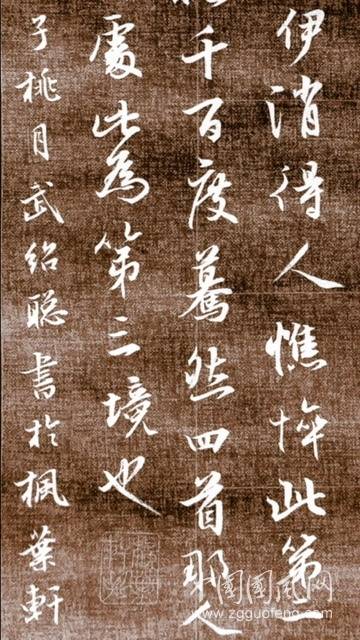 伊消得人憔悴此第
千百度驀然回首那人
處此為第三境也
子桃月武紹聰書於楓葉軒
www.zgguofeng.com